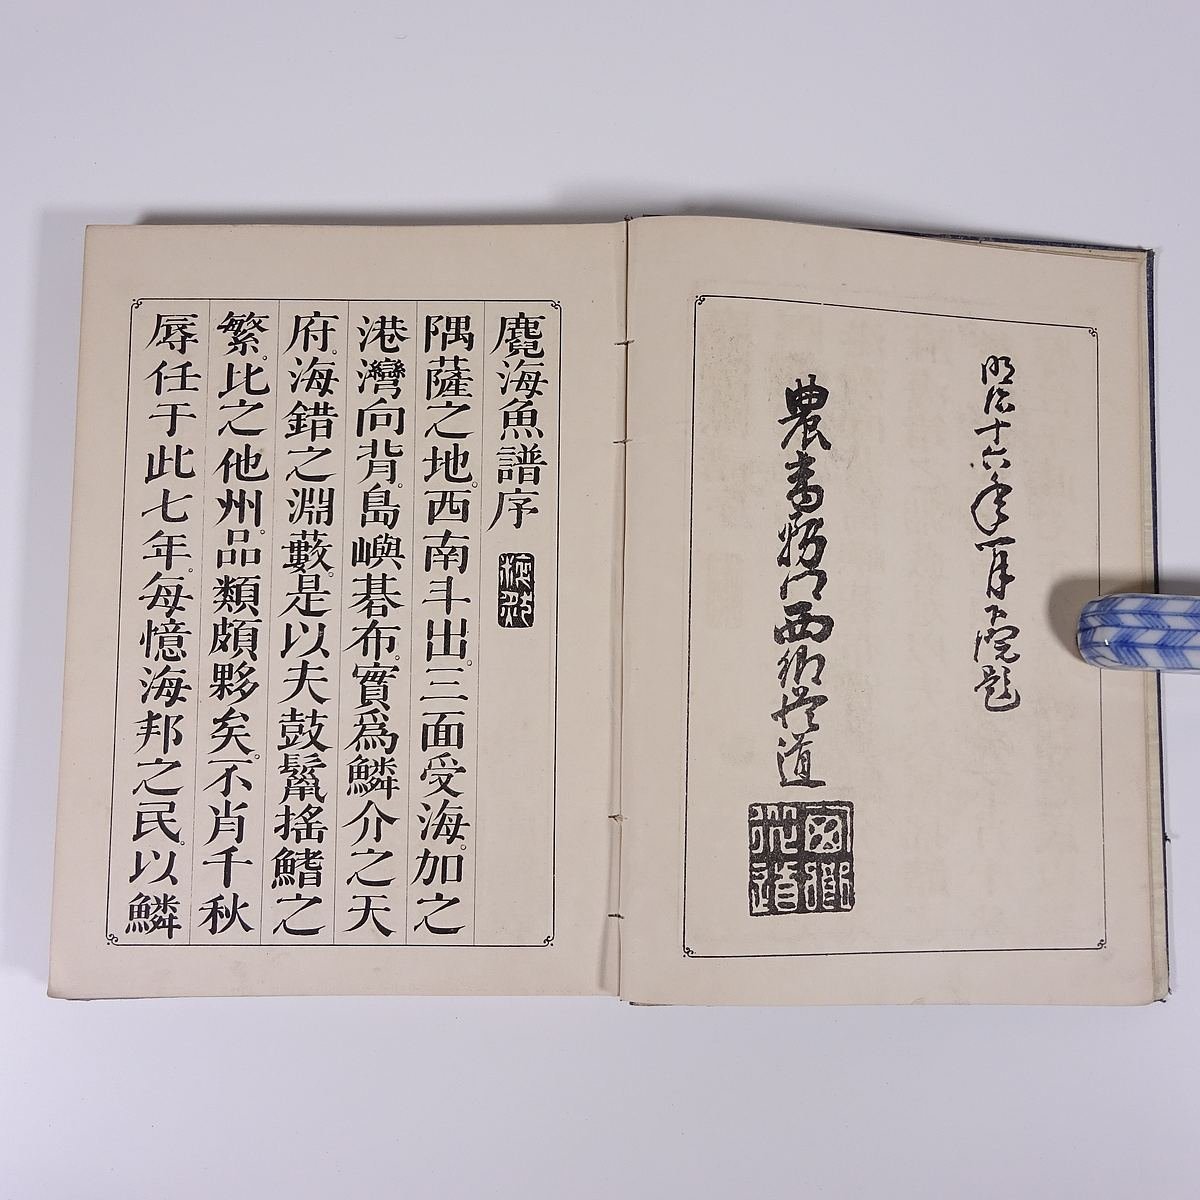 明治十六年一月下院題
農商務卿西鄉從道
麑海魚譜序
隅薩之地。西南斗出。三面受海。加之
港灣向背。島嶼碁布。實爲鱗介之天
府。海錯之淵藪。是以夫鼓鬣搖鰭之
繁。比之他州。品類頗夥矣。不肖千秋
辱任于此七年。每憶海邦之民。以鱗